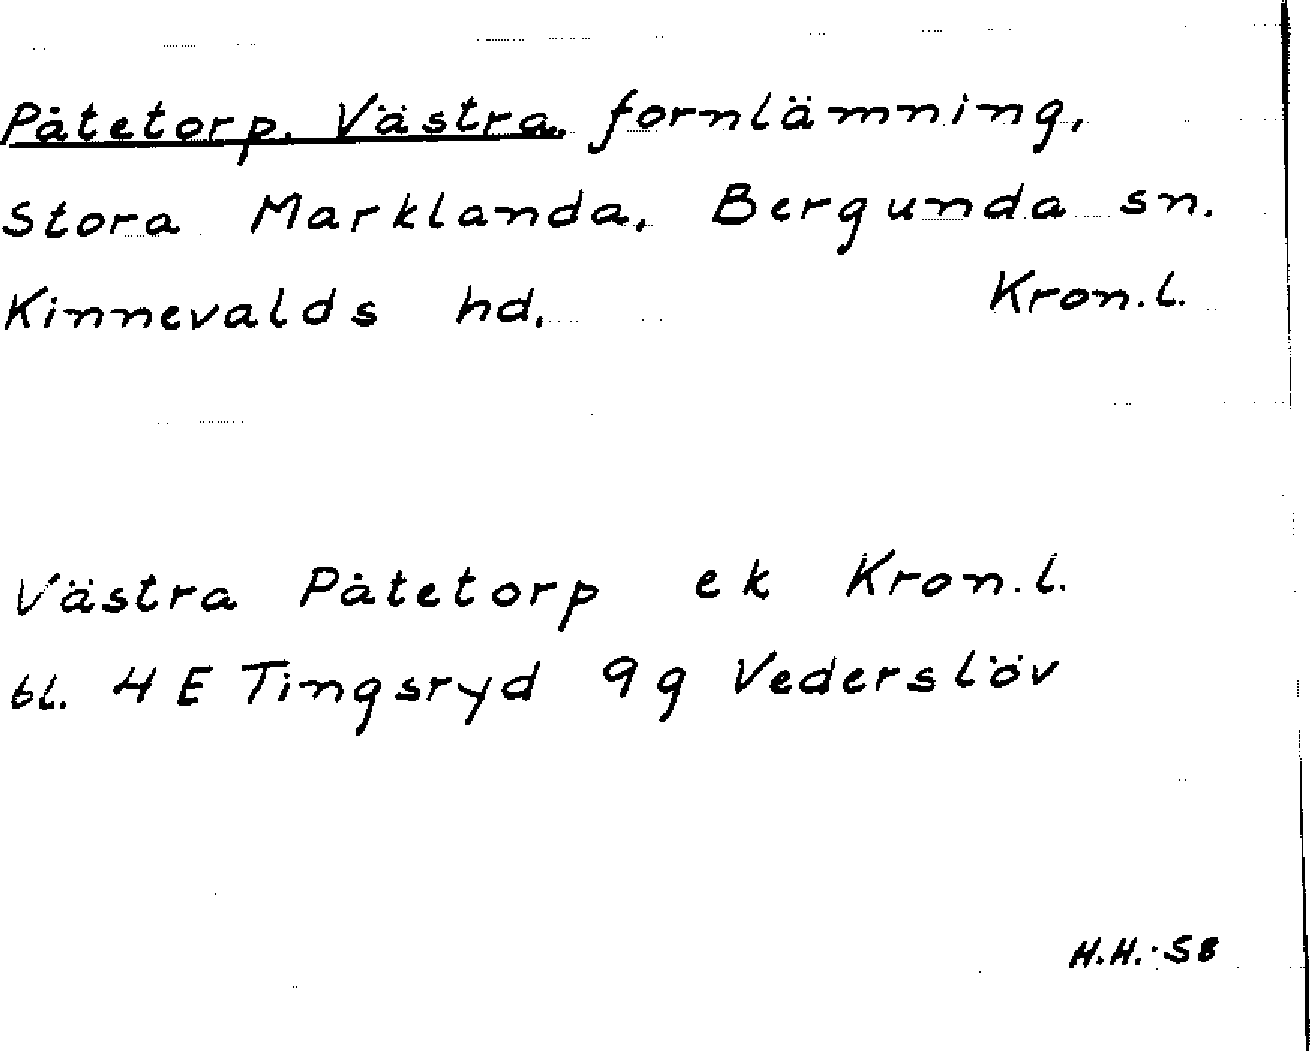 Påtetorp, Västra, fornlämning,
Stora Marklanda, Bergunda sn.
Kinnevalds hd. Kron.l.
Västra Påtetorp ek Kron.l.
bl. 4 E Tingsryd 9 g Vederslöv
H.H.-58